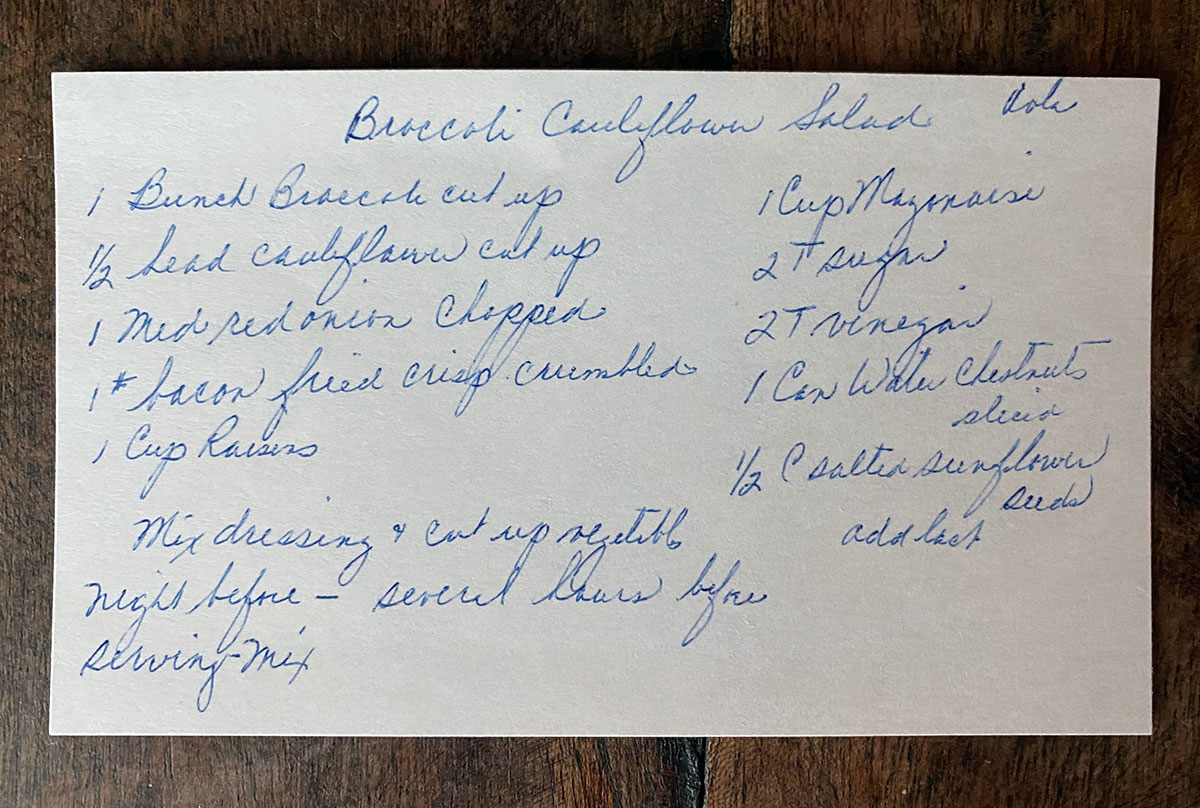 Broccoli Cauliflower Salad
1 Bunch Broccoli cut up
1/2 head cauliflower cut up
1 Med red onion chopped
1# bacon fried crisp crumbled
1 Cup Raisens
1 Cup Mayonaise
2 T sugar
2 T vinegar
1 Can Water Chestnuts
slicid
1/2 C salted sunflower
seeds
add last
Mix dressing & cut up vegetibls
night before - several hours before
serving - mix